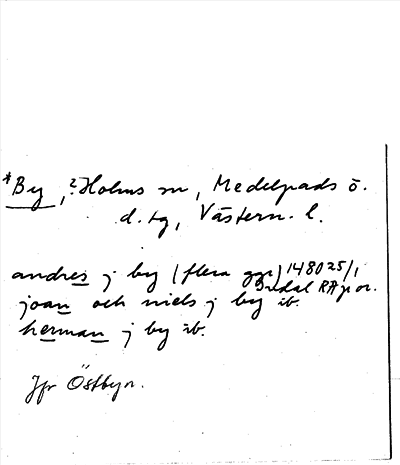 *By, ?Holms sn, Medelpads ö.
d.tg, Västern. l.
andres j by (flera ggr) 1480 25/1
Indal RAp or.
joan och niels j by ib.
herman j by ib.
Jfr Östbyn.